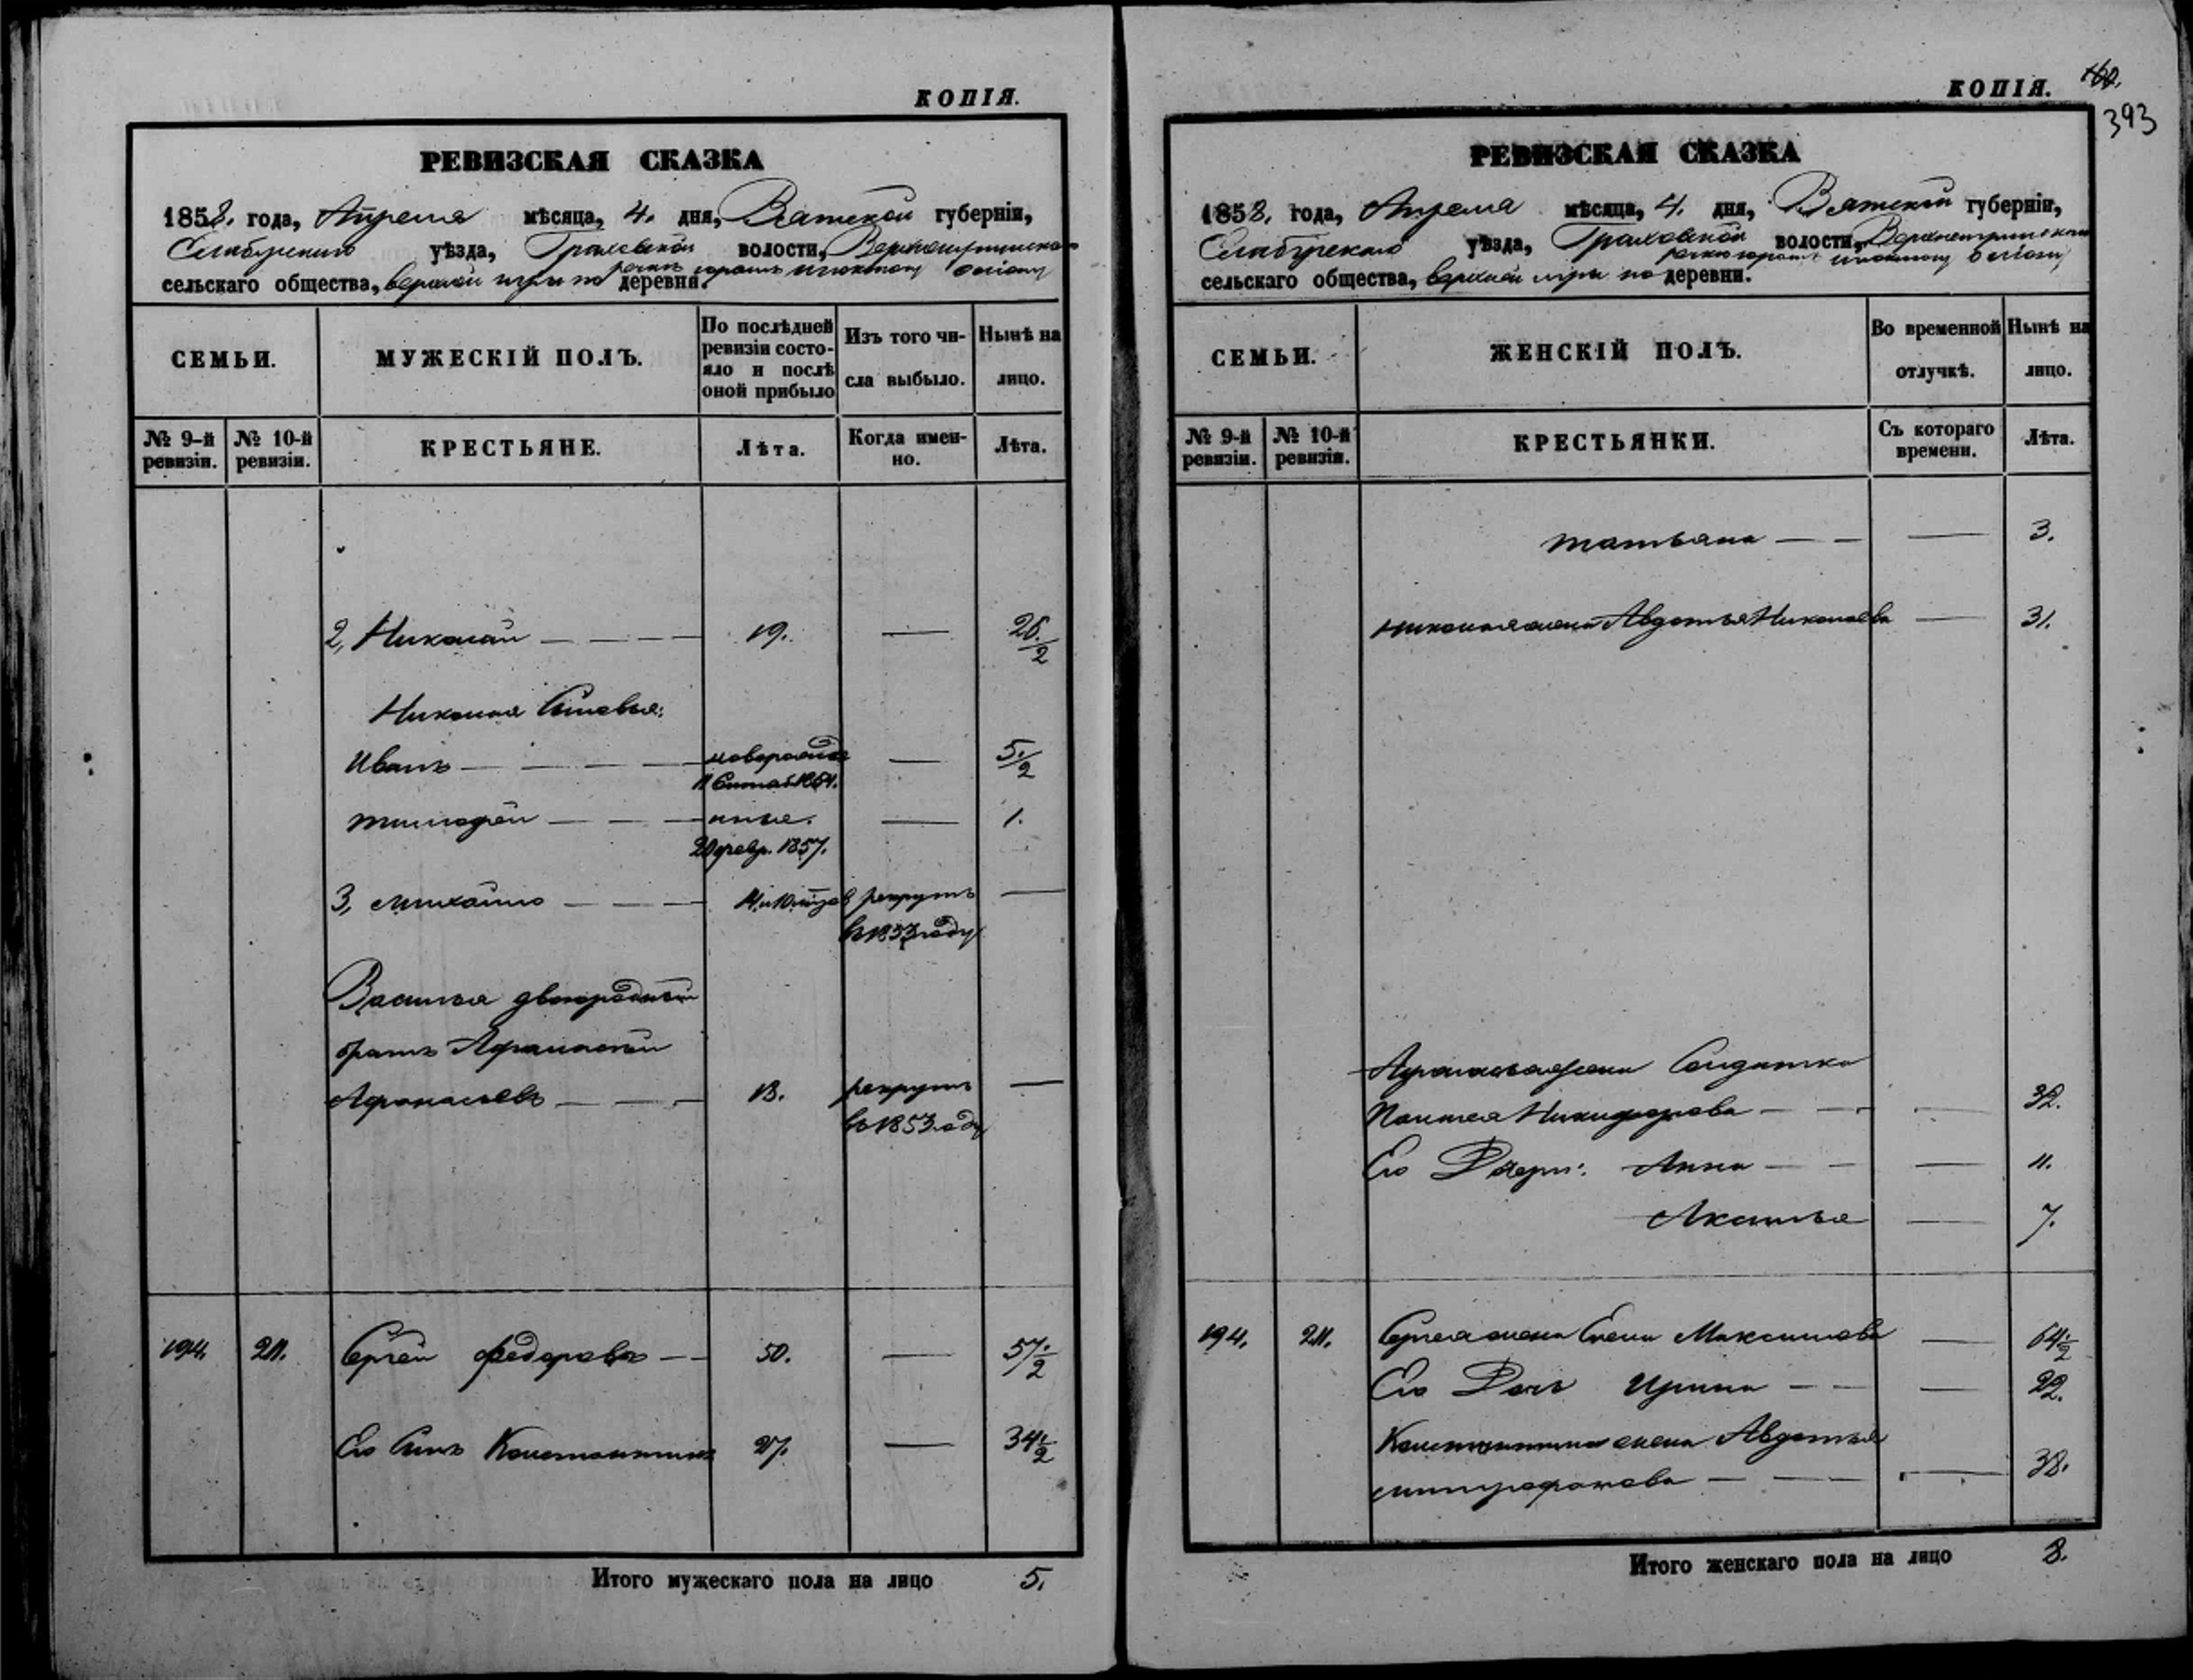 КОПІЯ.
РЕВИЗСКАЯ СКАЗКА
1858. года, Апреля мѣсяца, 4. дня, Вятской губерніи,
Елабужскаго уѣзда, Граховской волости,
сельскаго общества, верхней игры по деревни.
СЕМЬИ.
МУЖЕСКІЙ ПОЛЪ.
По послѣдней ревизіи состо-
яло и послѣ оной прибыло
Изъ того чи-
сла выбыло.
Нынѣ на
лицо.
№ 9-й ревизіи.
№ 10-й ревизіи.
КРЕСТЬЯНЕ.
Лѣта.
Когда имен-
но.
Лѣта.
2, Николай — — — 19. — 26 1/2
Николая Сыновья:
Иванъ — — — новорожд — 5 1/2
Тимофей — — — — 1.
20 февр. 1857.
3, Михайло — — — в рекруты —
въ 1853 году
Василья двоюродный
братъ Афанасий
Афанасьевъ — — — 13. рекрутъ —
въ 1853 году
194. 211. Сергей Федоровъ — — 50. — 57 1/2
Его Сынъ Константинъ 27. — 34 1/2
Итого мужескаго пола на лицо 5.
КОПІЯ.
393
РЕВИЗСКАЯ СКАЗКА
1858. года, Апреля мѣсяца, 4. дня, Вятской губерніи,
Елабужскаго уѣзда, Граховской волости,
сельскаго общества, верхней игры по деревни.
СЕМЬИ.
ЖЕНСКІЙ ПОЛЪ.
Во временной
отлучкѣ.
Нынѣ на
лицо.
№ 9-й ревизіи.
№ 10-й ревизіи.
КРЕСТЬЯНКИ.
Съ котораго
времени.
Лѣта.
Татьяна — — — 3.
Николая жена Авдотья Николаева — 31.
Афанасья жена Солдатка
Никифорова — — — 32.
Его Дочери: Анна — — — 11.
Аксинья — 7.
194. 211. Сергея жена Елена Максимова — 64 1/2
Его Дочь Ирина — — — 22.
Константина жена Авдотья
Митрофанова — — — 38.
Итого женскаго пола на лицо 8.